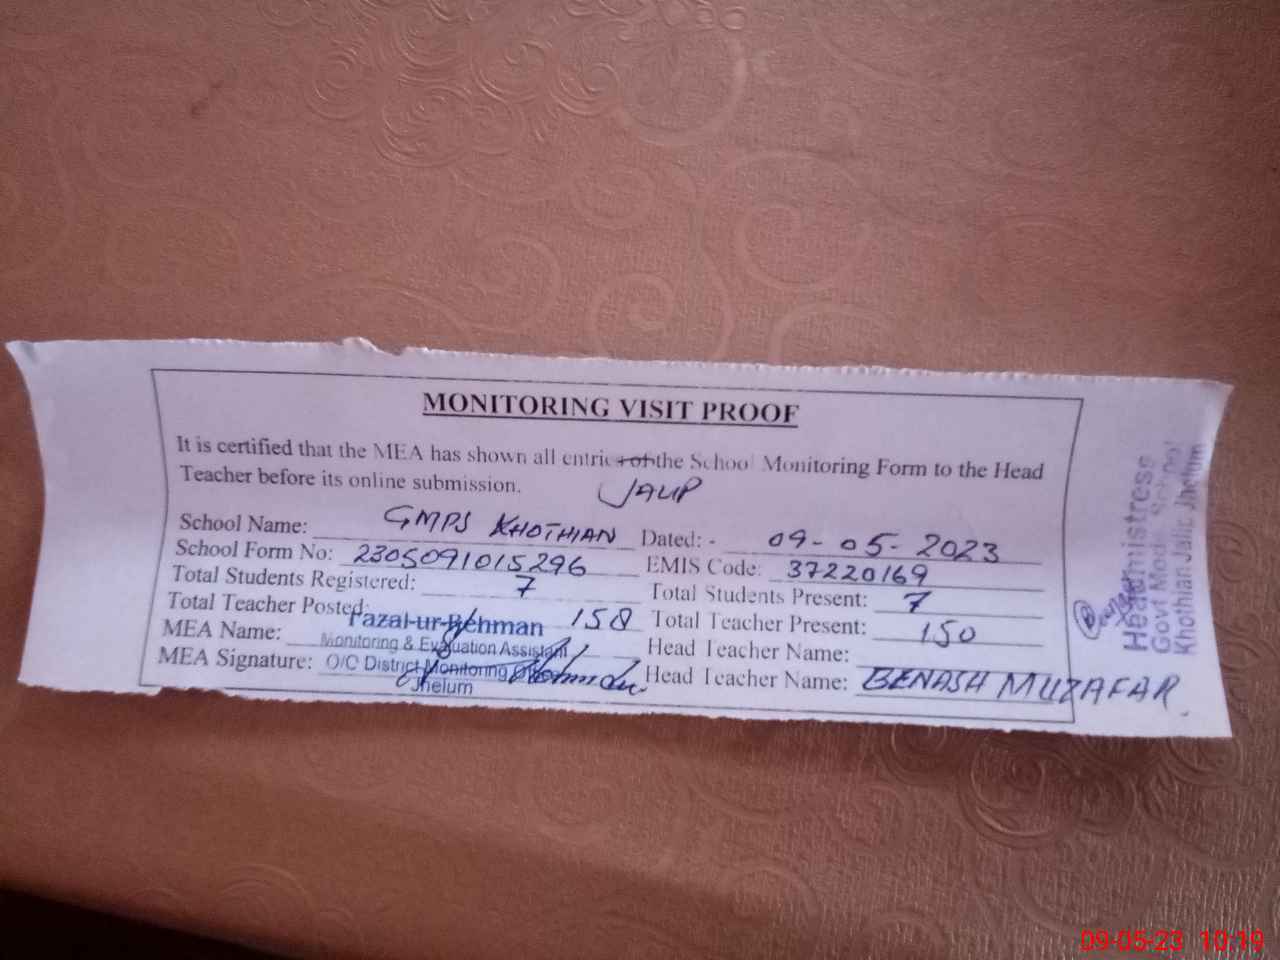 MONITORING VISIT PROOF
It is certified that the MEA has shown all entries of the School Monitoring Form to the Head
Teacher before its online submission.
JALIP
School Name: GMPS KHOTHIAN Dated: - 09-05-2023
School Form No: 2305091015296 EMIS Code: 37220169
Total Students Registered: 7 Total Students Present: 7
Total Teacher Posted: 158 Total Teacher Present: 150
MEA Name: Fazal-ur-Rehman Head Teacher Name:
Monitoring & Evaluation Assistant
MEA Signature: O/C District Monitoring Head Teacher Name: BENASH MUZAFAR
Jhelum
Headmistress
Govt Model School
Khothian Jalip Jhelum
09-05-23 10:19